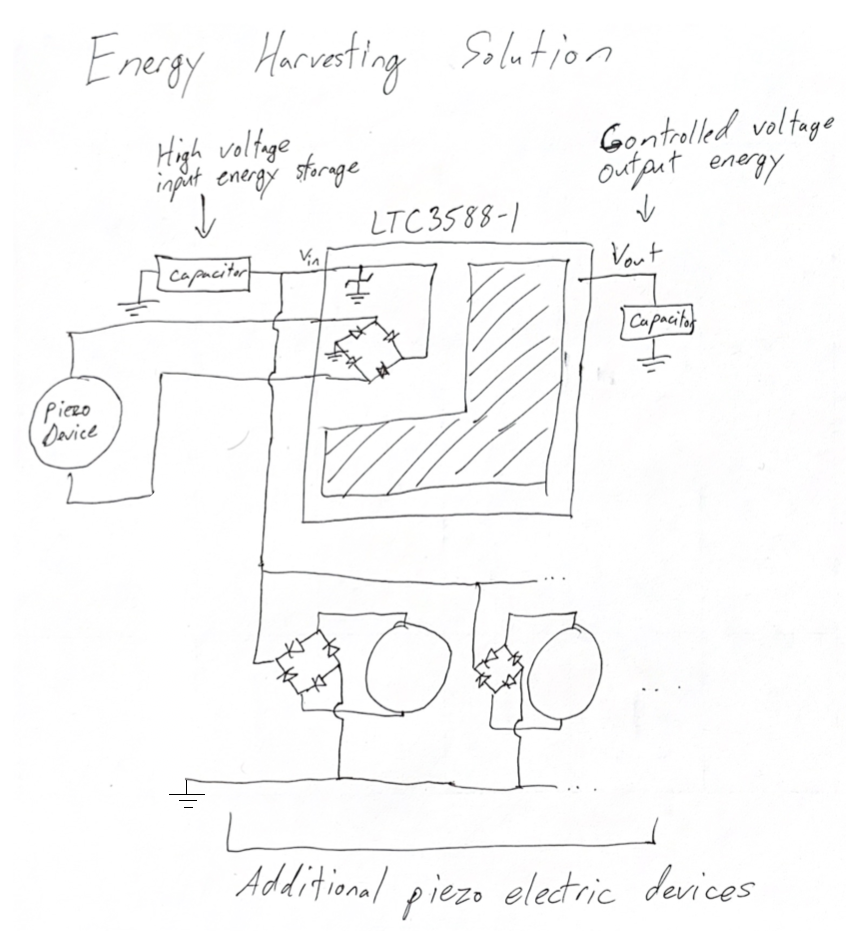 Energy Harvesting Solution
High voltage
input energy storage
Controlled voltage
output energy
LTC3588-1
Vin
Vout
Capacitor
Capacitor
Piezo
Device
...
...
...
Additional piezo electric devices